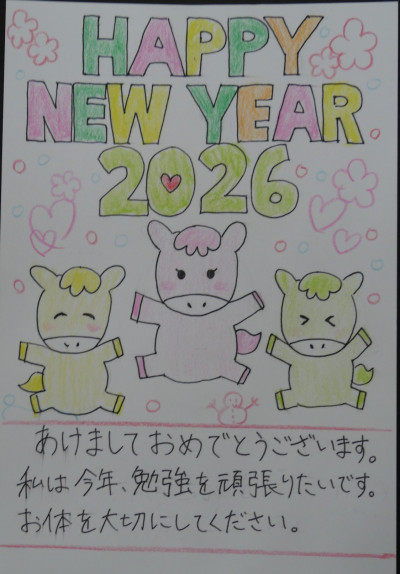 HAPPY
NEW YEAR
2026
あけましておめでとうございます。
私は今年、勉強を頑張りたいです。
お体を大切にしてください。